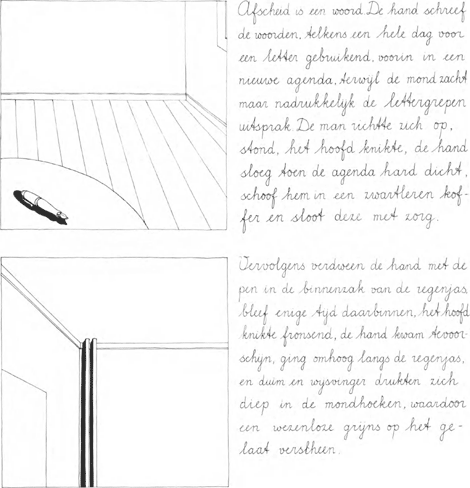 Afscheid is een woord. De hand schreef
de woorden, telkens een hele dag voor
een letter gebruikend, voorin in een
nieuwe agenda, terwijl de mond zacht
maar nadrukkelijk de lettergrepen
uitsprak. De man richtte zich op,
stond, het hoofd knikte, de hand
sloeg toen de agenda hard dicht,
schoof hem in een zwartleren kof-
fer en sloot deze met zorg.
Vervolgens verdween de hand met de
pen in de binnenzak van de regenjas,
bleef enige tijd daarbinnen, het hoofd
knikte fronsend, de hand kwam tevoor-
schijn, ging omhoog langs de regenjas,
en duim en wijsvinger drukten zich
diep in de mondhoeken, waardoor
een wezenloze grijns op het ge-
laat verscheen.